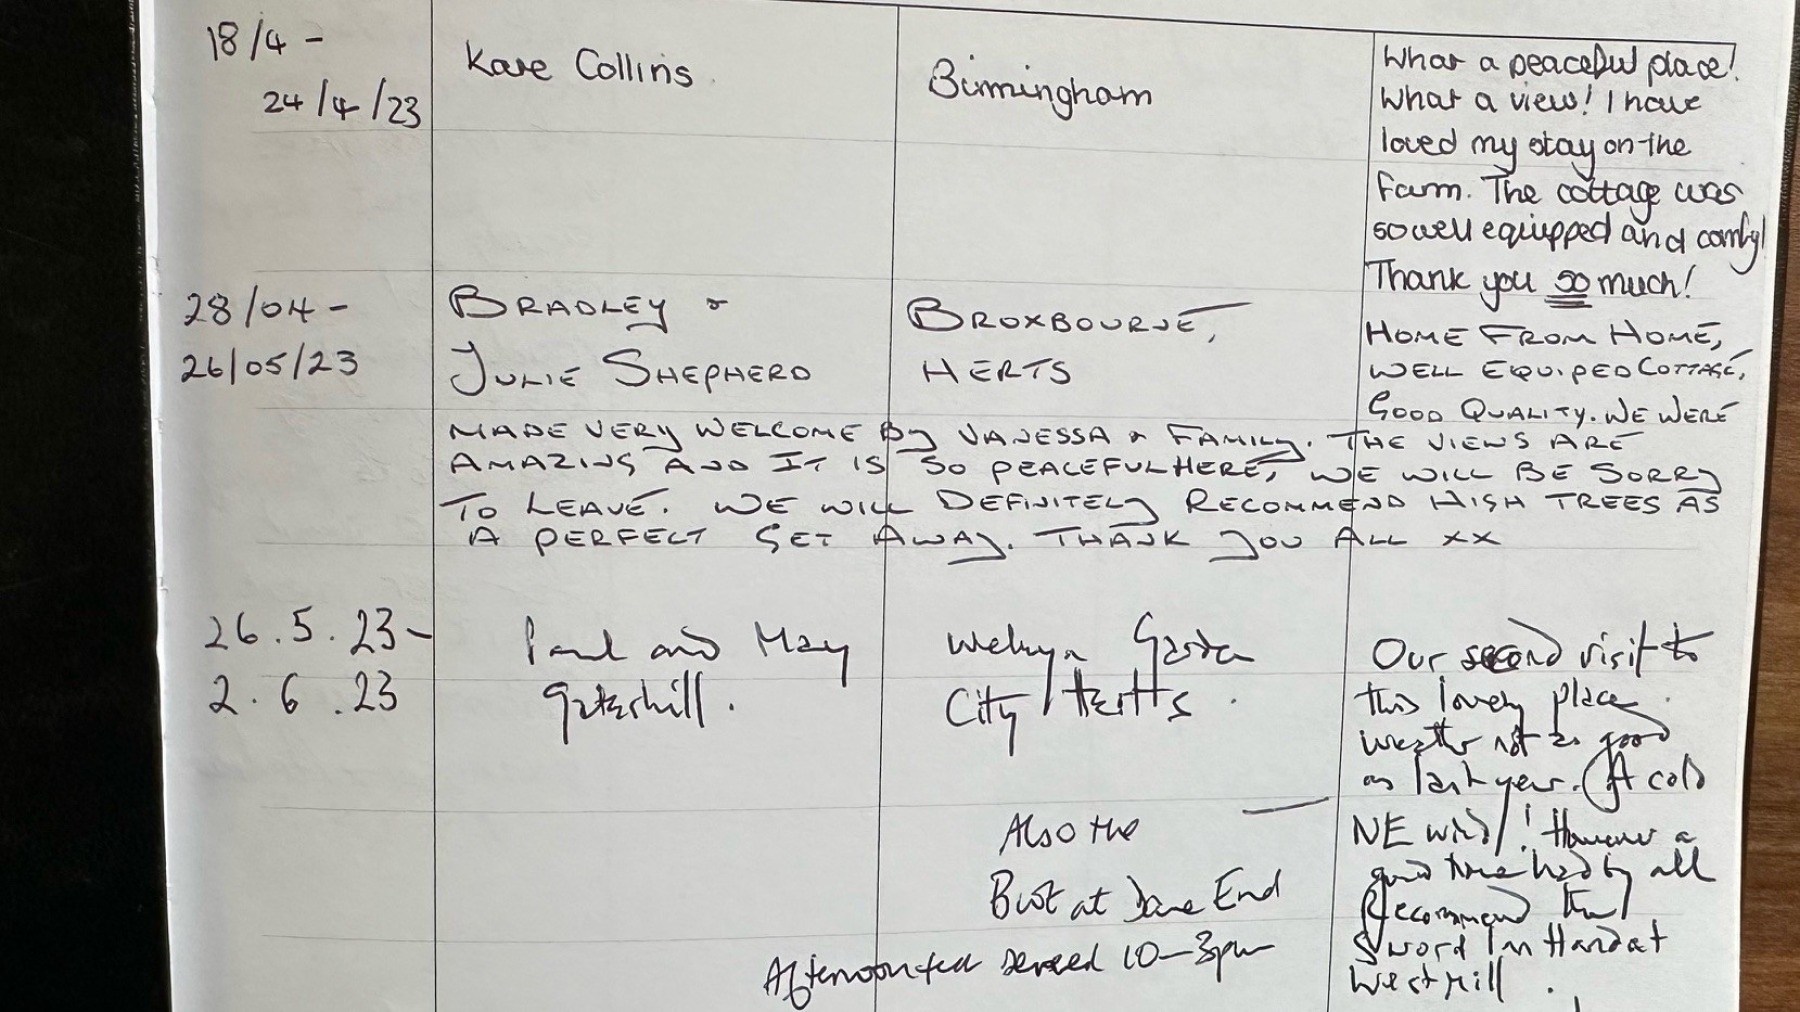 18/4 -
24/4/23
Kate Collins
Birmingham
What a peaceful place!
What a view! I have
loved my stay on the
farm. The cottage was
so well equipped and comfy!
Thank you so much!
28/04 -
26/05/23
BRADLEY &
JULIE SHEPHERD
BROXBOURNE,
HERTS
HOME FROM HOME,
WELL EQUIPED COTTAGE,
GOOD QUALITY. WE WERE
MADE VERY WELCOME By VANESSA & FAMILy. THE VIEWS ARE
AMAZING AND IT IS SO PEACEFUL HERE, WE WILL BE SORRy
TO LEAVE. WE WILL DEFINITELy RECOMMEND HIGH TREES AS
A PERFECT GET AWAy. THANK yOU ALL xx
26.5.23-
2.6.23
Paul and May
Gateshill.
Welwyn Garden
City Hertts.
Our second visit to
this lovely place
weather not as good
as last year. (A cold
NE wind)! However a
good time had by all
Recommend the
Sword In Hand at
Westmill.
Also the
at Dane End
Afternoon tea served 10-3pm